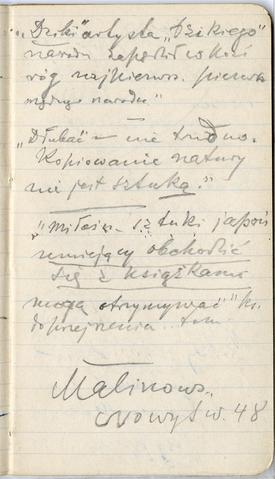 „Dziki” artysta „Dzikiego”
narodu zapatrił w kość
róg najpierws. pierws
mądrego narodu”
„Dłubać” – nie trudno.
Kopiowanie natury
nie jest sztuką.”
„miłośn. sztuki japoń
umiejący obchodzić
się z książkami
mogą otrzymywać” ks.
do przejrzenia tom
Malinows.
Nowy Św. 48